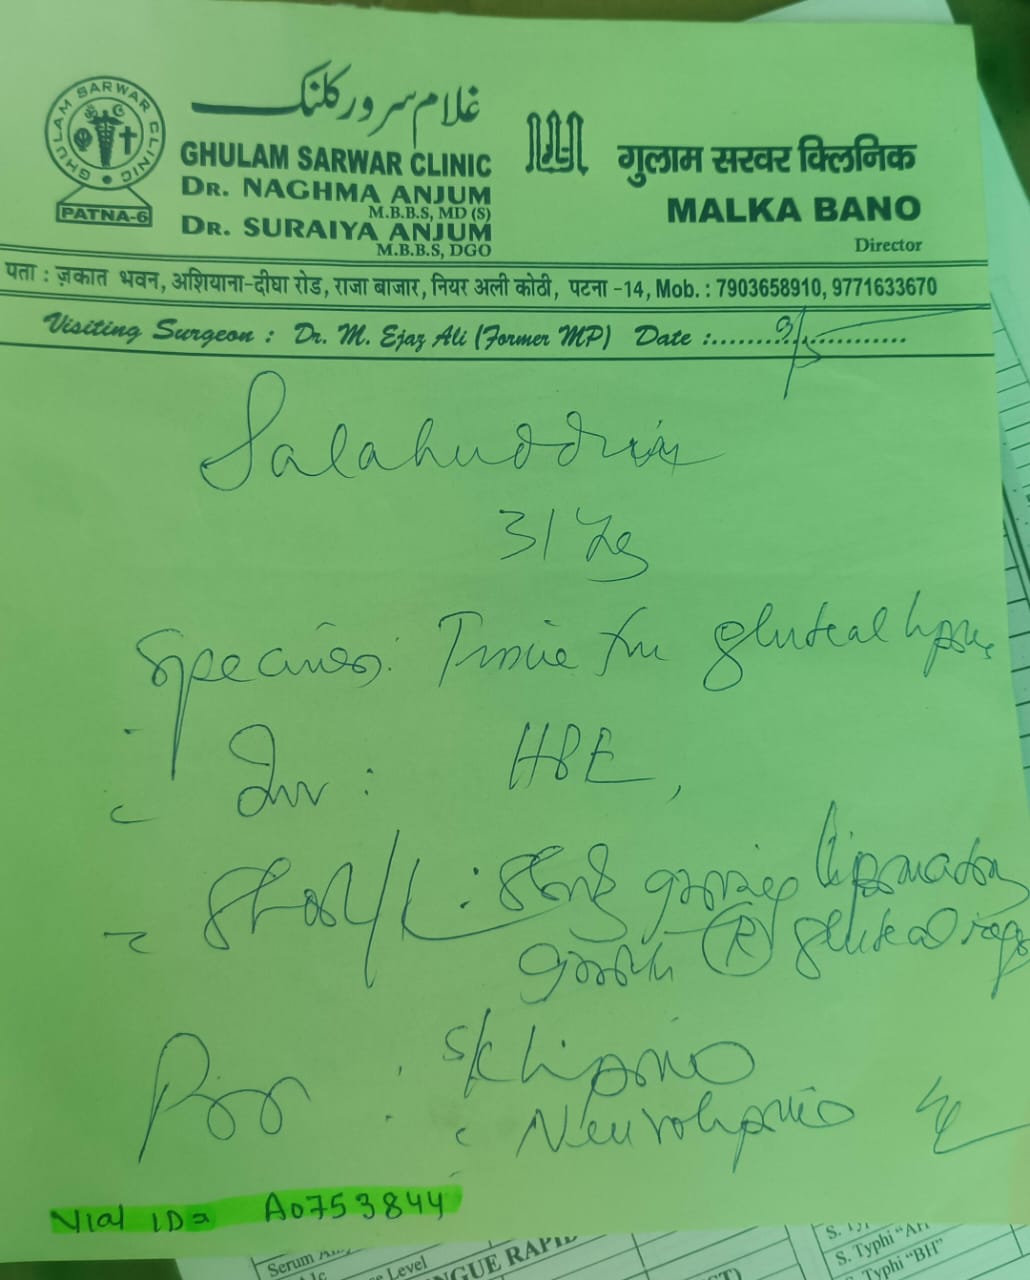 غلام سرور کلنک
GHULAM SARWAR CLINIC
PATNA-6
GHULAM SARWAR CLINIC
DR. NAGHMA ANJUM
M.B.B.S, MD (S)
DR. SURAIYA ANJUM
M.B.B.S, DGO
गुलाम सरवर क्लिनिक
MALKA BANO
Director
पता : ज़कात भवन, अशियाना-दीघा रोड, राजा बाजार, नियर अली कोठी, पटना -14, Mob. : 7903658910, 9771633670
Visiting Surgeon : Dr. M. Ejaz Ali (Former MP) Date :
Salahuddin
31 Yrs
Tissue fm gluteal
Inv : HPE,
Slowly growing lipomatous
growth (R) gluteal
Lipoma
Neurolipoma
Vial ID = A0753844
Level
S. Typhi "AH"
Typhi "BH"